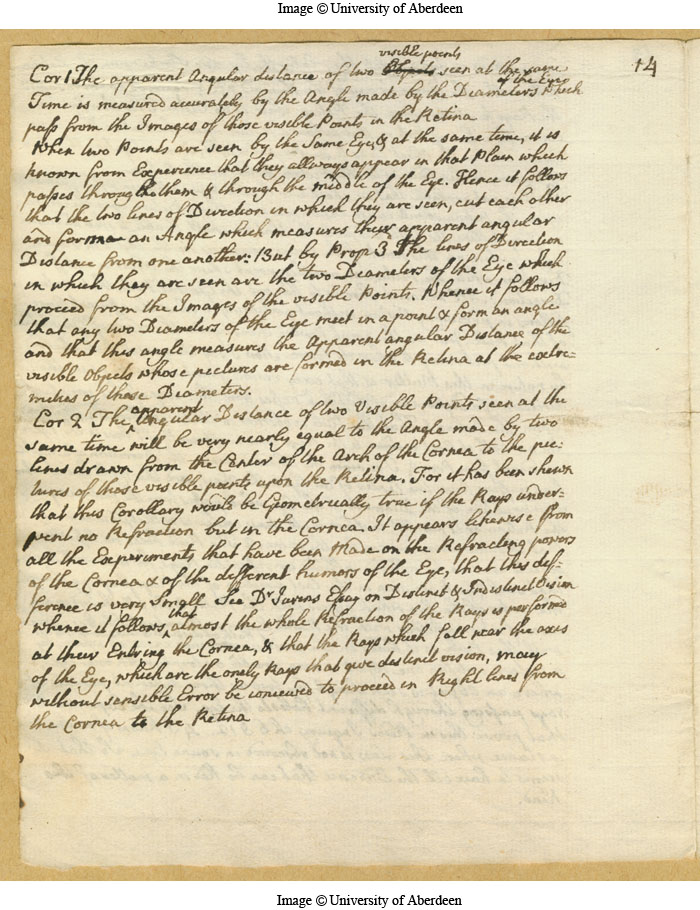 Image © University of Aberdeen
14
visible points
Cor 1 The apparent Angular distance of two Objects seen at the same
of the Eye
Time is measured accurately by the Angle made by the Diameters which
pass from the Images of those visible Points in the Retina
When two Points are seen by the Same Eye, & at the same time, it is
known from Experience that they allways appear in that Plain which
passes through them & through the middle of the Eye. Hence it follows
that the two lines of Direction in which they are seen, cut each other
and form an Angle which measures their apparent angular
Distance from one another: But by Prop 3d The lines of Direction
in which they are seen are the two Diameters of the Eye which
proceed from the Images of the visible Points. Whence it follows
that any two Diameters of the Eye meet in a point & form an angle
and that this angle measures the Apparent angular Distance of the
visible Objects whose pictures are formed in the Retina at the extre-
mities of those Diameters.
apparent
Cor 2 The Angular Distance of two Visible Points seen at the
same time will be very nearly equal to the Angle made by two
lines drawn from the Center of the Arch of the Cornea to the pic:
tures of those visible points upon the Retina. For it has been shewn
that this Corollary would be Geometrically true if the Rays under-
went no Refraction but in the Cornea. It appears likewise from
all the Experiments that have been Made on the Refracting powers
of the Cornea & of the different humors of the Eye, that this dif-
ference is very Small See Dr Jurins Essay on Distinct & Indistinct Vision
that
whence it follows almost the whole Refraction of the Rays is performed
at their Entring the Cornea, & that the Rays which fall near the axis
of the Eye, which are the onely Rays that give distinct vision, may
without sensible Error be conceived to proceed in Right lines from
the Cornea to the Retina
Image © University of Aberdeen